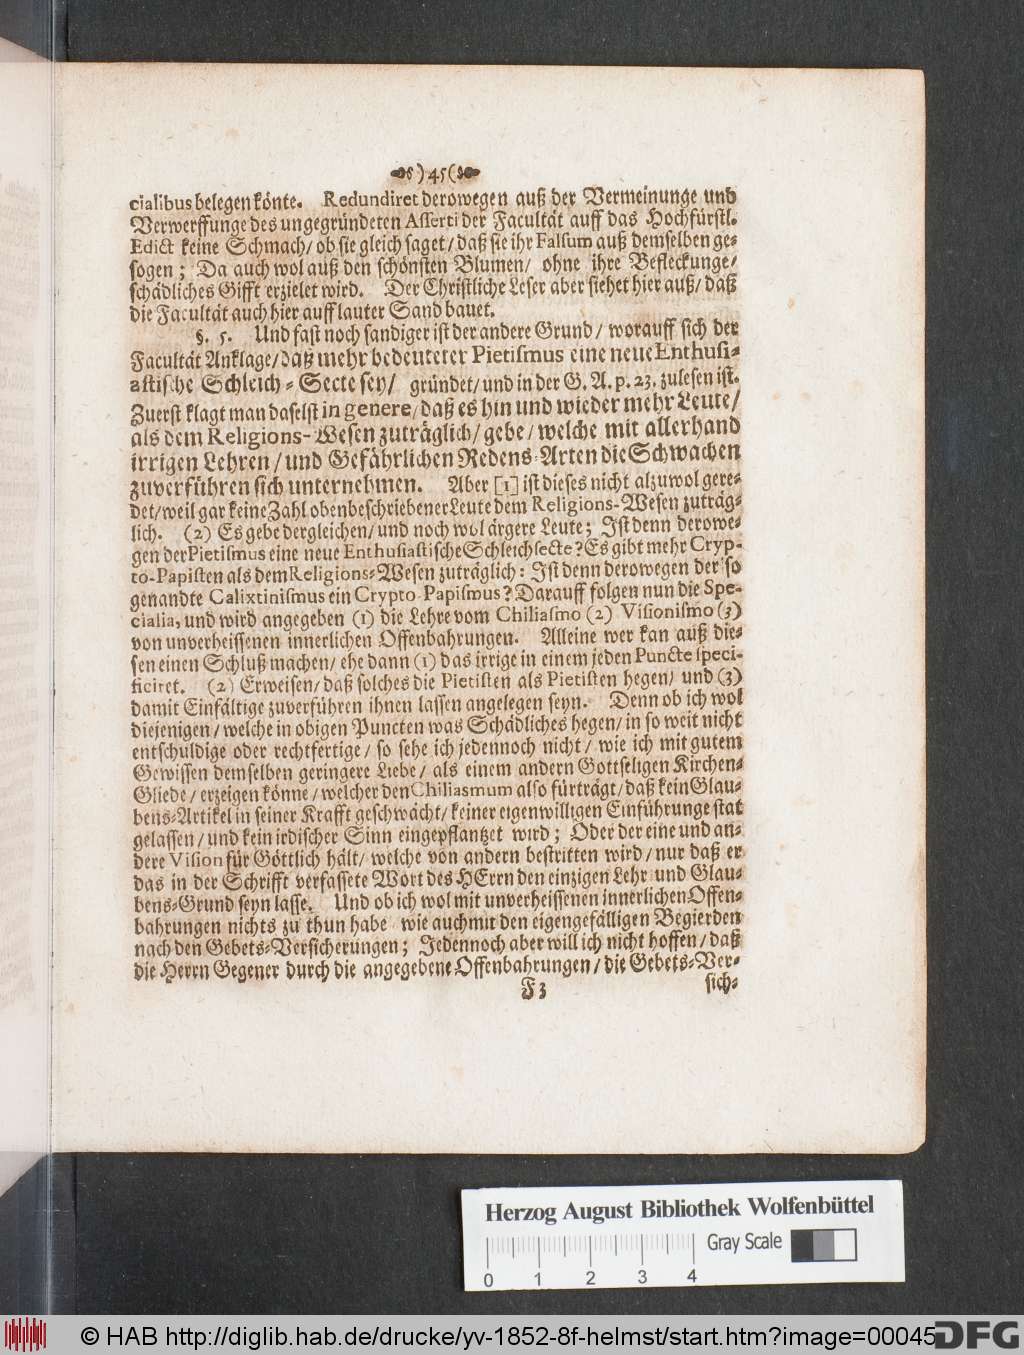 ) 45 (
cialibus belegen könte. Redundiret derowegen auß der Vermeinunge und
Verwerffunge des ungegründeten Asserti der Facultät auff das Hochfürstl.
Edict keine Schmach/ ob sie gleich saget/ daß sie ihr Falsum auß demselben ge-
sogen; Da auch wol auß den schönsten Blumen/ ohne ihre Befleckunge/
schädliches Gifft erzielet wird. Der Christliche Leser aber siehet hier auß/ daß
die Facultät auch hier auff lauter Sand bauet.
§. 5. Und fast noch sandiger ist der andere Grund/ worauff sich der
Facultät Anklage/ daß mehr bedeuteter Pietismus eine neue Enthusi-
astische Schleich-Secte sey/ gründet/ und in der G. A. p. 23. zulesen ist.
Zuerst klagt man daselst in genere, daß es hin und wieder mehr Leute/
als dem Religions-Wesen zuträglich/ gebe/ welche mit allerhand
irrigen Lehren/ und Gefährlichen Redens-Arten die Schwachen
zuverführen sich unternehmen. Aber [1] ist dieses nicht alzuwol gere-
det/ weil gar keine Zahl obenbeschriebener Leute dem Religions-Wesen zuträg-
lich. (2) Es gebe dergleichen/ und noch wol ärgere Leute; Ist denn derowe-
gen der Pietismus eine neue Enthusiastische Schleichsecte? Es gibt mehr Cryp-
to-Papisten als dem Religions-Wesen zuträglich: Ist denn derowegen der so
genandte Calixtinismus ein Crypto-Papismus? Darauff folgen nun die Spe-
cialia, und wird angegeben (1) die Lehre vom Chiliasmo (2) Visionismo (3)
von unverheissenen innerlichen Offenbahrungen. Alleine wer kan auß die-
sen einen Schluß machen/ ehe dann (1) das irrige in einem jeden Puncte speci-
ficiret. (2) Erweisen/ daß solches die Pietisten als Pietisten hegen/ und (3)
damit Einfältige zuverführen ihnen lassen angelegen seyn. Denn ob ich wol
diejenigen/ welche in obigen Puncten was Schädliches hegen/ in so weit nicht
entschuldige oder rechtfertige/ so sehe ich jedennoch nicht/ wie ich mit gutem
Gewissen demselben geringere Liebe/ als einem andern Gottseligen Kirchen-
Gliede/ erzeigen könne/ welcher den Chiliasmum also fürträgt/ daß kein Glau-
bens-Artikel in seiner Krafft geschwächt/ keiner eigenwilligen Einführunge stat
gelassen/ und kein irdischer Sinn eingepflantzet wird; Oder der eine und an-
dere Vision für Göttlich hält/ welche von andern bestritten wird/ nur daß er
das in der Schrifft verfassete Wort des HErrn den einzigen Lehr und Glau-
bens-Grund seyn lasse. Und ob ich wol mit unverheissenen innerlichen Offen-
bahrungen nichts zu thun habe wie auch mit den eigengefälligen Begierden
nach den Gebets-Versicherungen; Jedennoch aber will ich nicht hoffen/ daß
die Herrn Gegener durch die angegebene Offenbahrungen/ die Gebets-Ver-
F 3 sich-
Herzog August Bibliothek Wolfenbüttel
Gray Scale
0 1 2 3 4
© HAB http://diglib.hab.de/drucke/yv-1852-8f-helmst/start.htm?image=00045
DFG